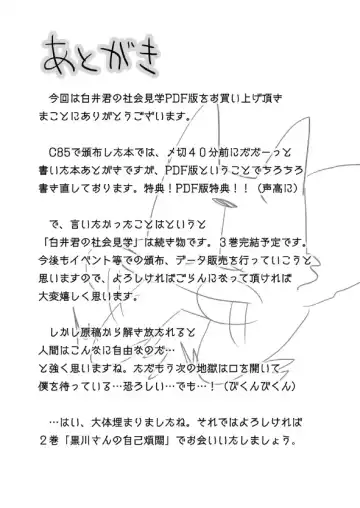 あとがき
今回は白井君の社会見学PDF版をお買い上げ頂き
まことにありがとうございます。
C85で頒布した本では、〆切40分前にだだーっと
書いた本あとがきですが、PDF版ということでちろちろ
書き直しております。特典！PDF版特典！！（声高に）
で、言いたかったことはというと
「白井君の社会見学」は続き物です。3巻完結予定です。
今後もイベント等での頒布、データ販売を行っていこうと
思いますので、よろしければごらんになって頂ければ
大変嬉しく思います。
しかし原稿から解き放たれると
人間はこんなに自由なのだ…
と強く思いますね。ただもう次の地獄は口を開いて
僕を待っている…恐ろしい…でも…！（びくんびくん）
…はい、大体埋まりましたね。それではよろしければ
2巻「黒川さんの自己煩悶」でお会いいたしましょう。